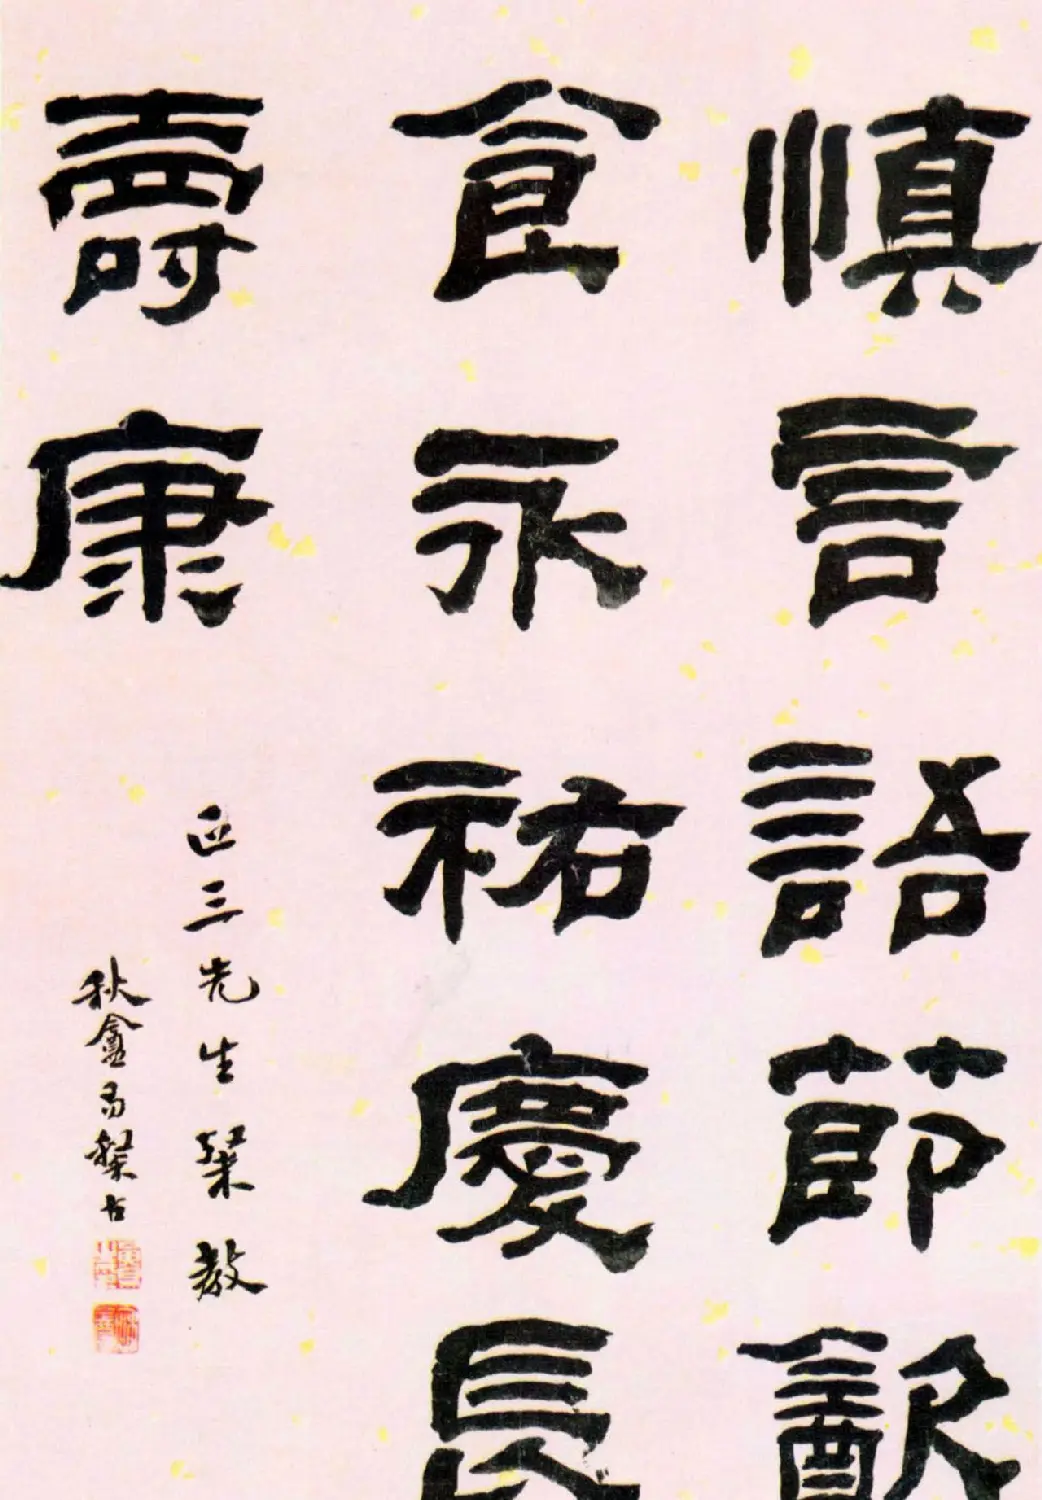 慎言語節飲
食永祐慶長
壽康
匹三先生槼教
秋盦易槼古